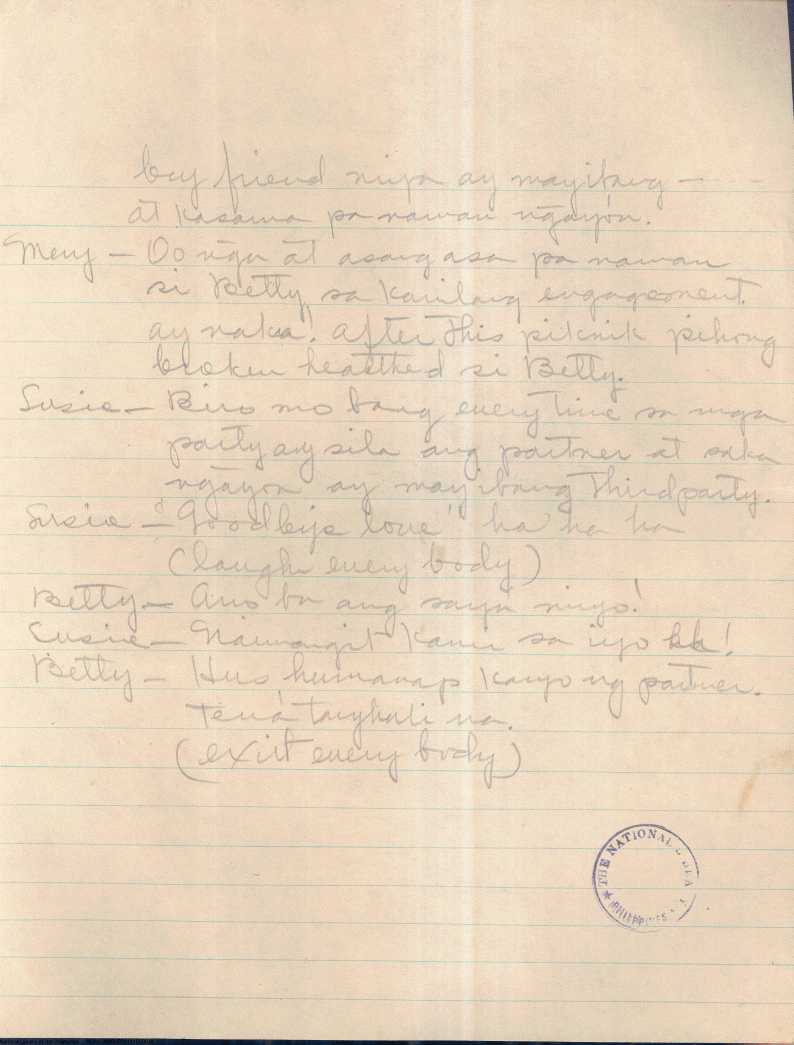 boy friend niya ay mayibang —
at kasama pa naman ngayon.
Meny — Oo nga at asang asa pa naman
si Betty sa kanilang engagement.
ay naku! After this piknik pihong
broken heatthed si Betty.
Susie — Biro mo bang every time sa mga
party ay sila ang partner at saka
ngayon ay may ibang Third party.
Susie — "Goodbye love" ha ha ha
(laugh every body)
Betty — Ano ba ang saya ninyo!
Susie — Naiinngit kami sa iyo
Betty — Hus humanap kayo ng partner.
Tena tanghali na.
(exit every body)
THE NATIONAL
PHILIPPINES